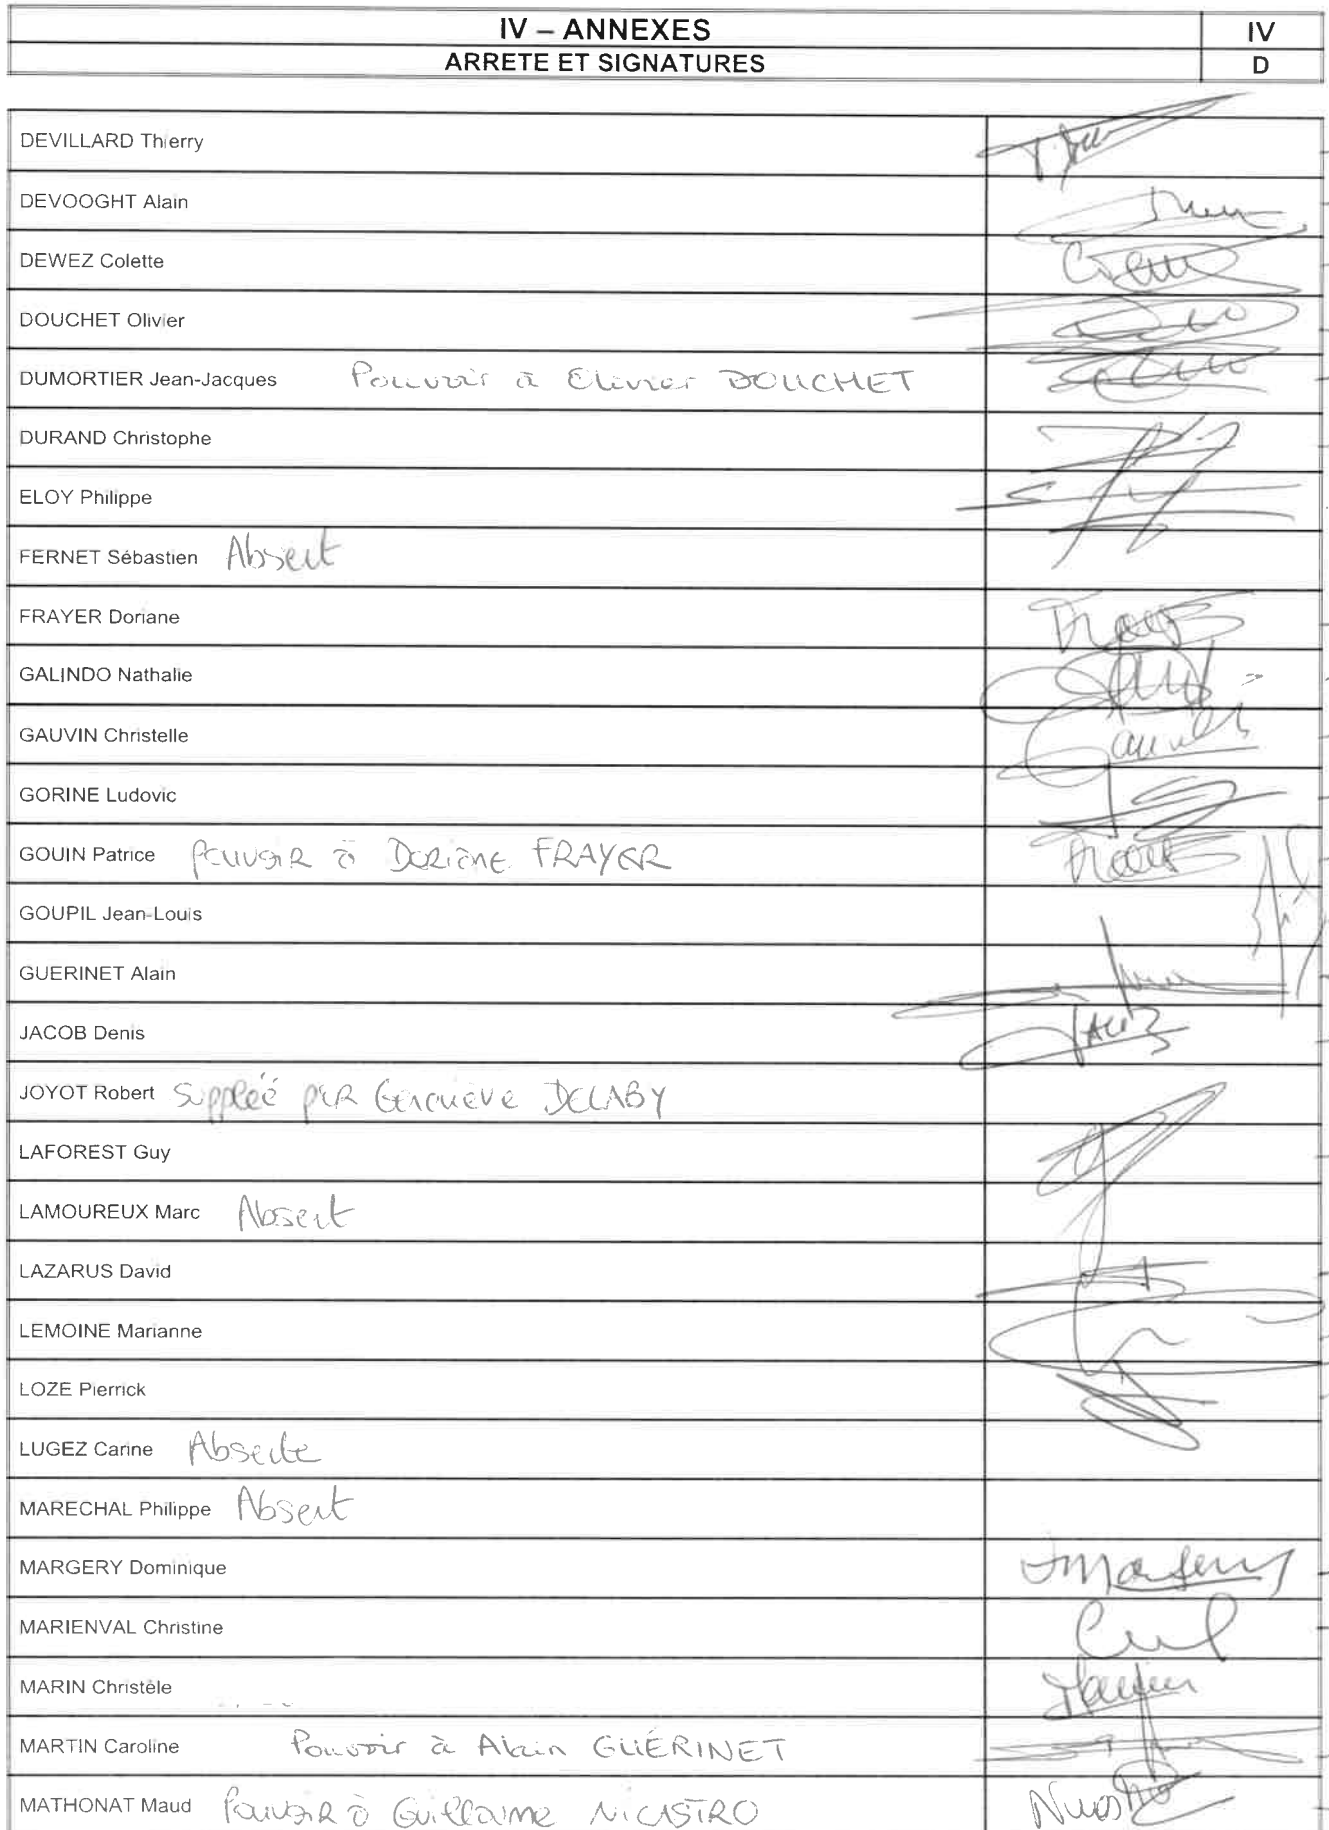 IV – ANNEXES IV
ARRETE ET SIGNATURES D
DEVILLARD Thierry
DEVOOGHT Alain
DEWEZ Colette
DOUCHET Olivier
DUMORTIER Jean-Jacques Pouvoir à Olivier DOUCHET
DURAND Christophe
ELOY Philippe
FERNET Sébastien Absent
FRAYER Doriane
GALINDO Nathalie
GAUVIN Christelle
GORINE Ludovic
GOUIN Patrice POUVOIR à DORIANE FRAYER
GOUPIL Jean-Louis
GUERINET Alain
JACOB Denis
JOYOT Robert Suppléé PAR Geneviève DELABY
LAFOREST Guy
LAMOUREUX Marc Absent
LAZARUS David
LEMOINE Marianne
LOZE Pierrick
LUGEZ Carine Absente
MARECHAL Philippe Absent
MARGERY Dominique
MARIENVAL Christine
MARIN Christèle
MARTIN Caroline Pouvoir à Alain GUÉRINET
MATHONAT Maud Pouvoir à Guillaume NICASTRO